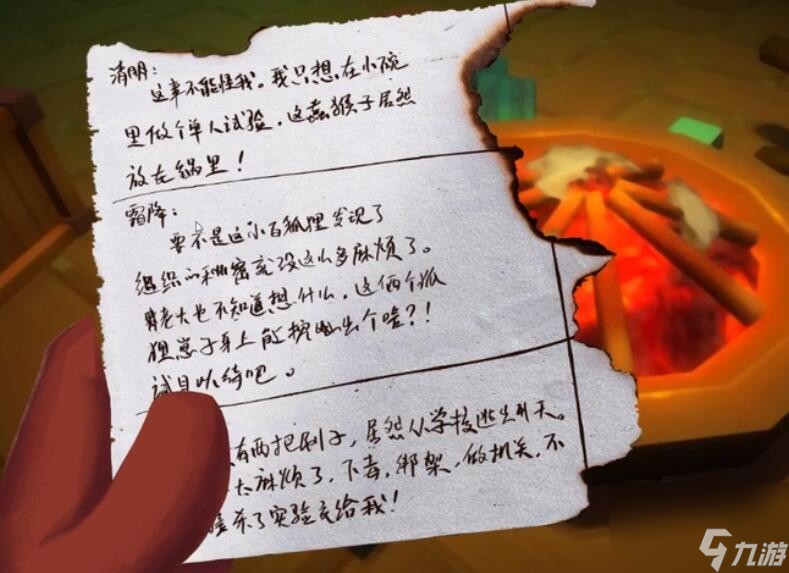 清明：
这事不能怪我。我只想在小碗
里做个单人试验，这蠢猴子居然
放在锅里！
霜降：
要不是这小百狐狸发现了
组织的秘密就没这么多麻烦了。
老大也不知道想什么，这俩个狐
狸崽子身上能挖出个啥？！
试目以待吧。
有两把刷子，居然从学校逃出升天。
太麻烦了，下毒，绑架，做机关，不
杀了实验交给我！
九游